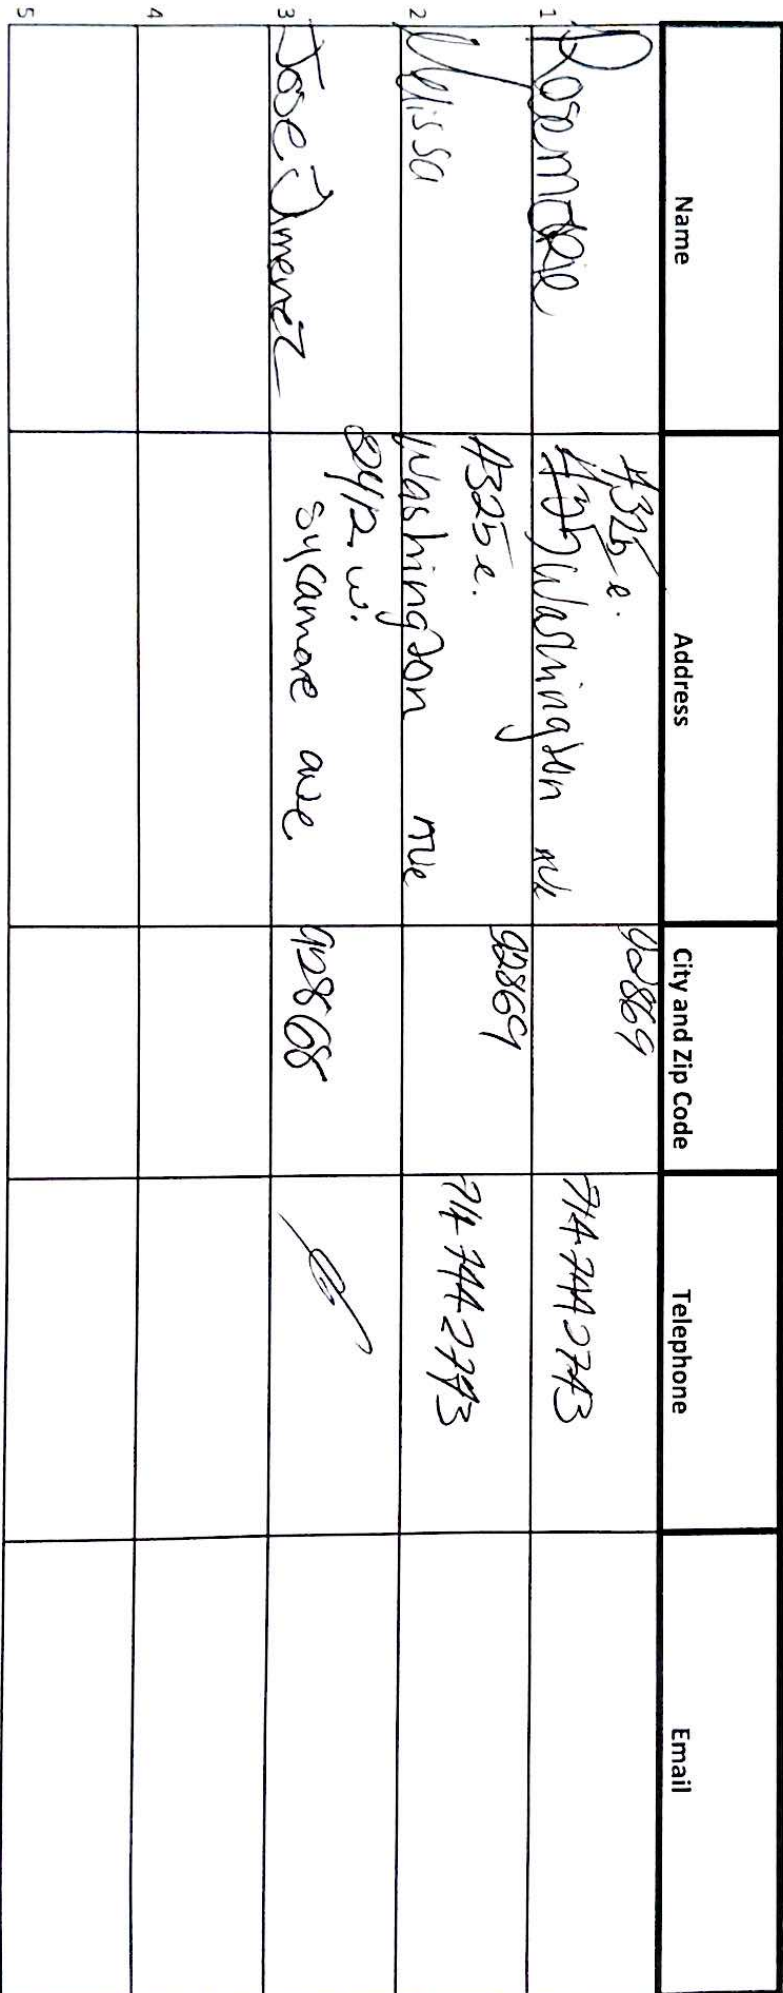 Name Address City and Zip Code Telephone Email
1 Rosemarie 4325 e. Washington Ave 92869 714 744 2743
2 Melissa 4325 e. Washington Ave 92869 714 744 2743
3 Jose Jimenez 2412 w. sycamore ave 92868
4
5